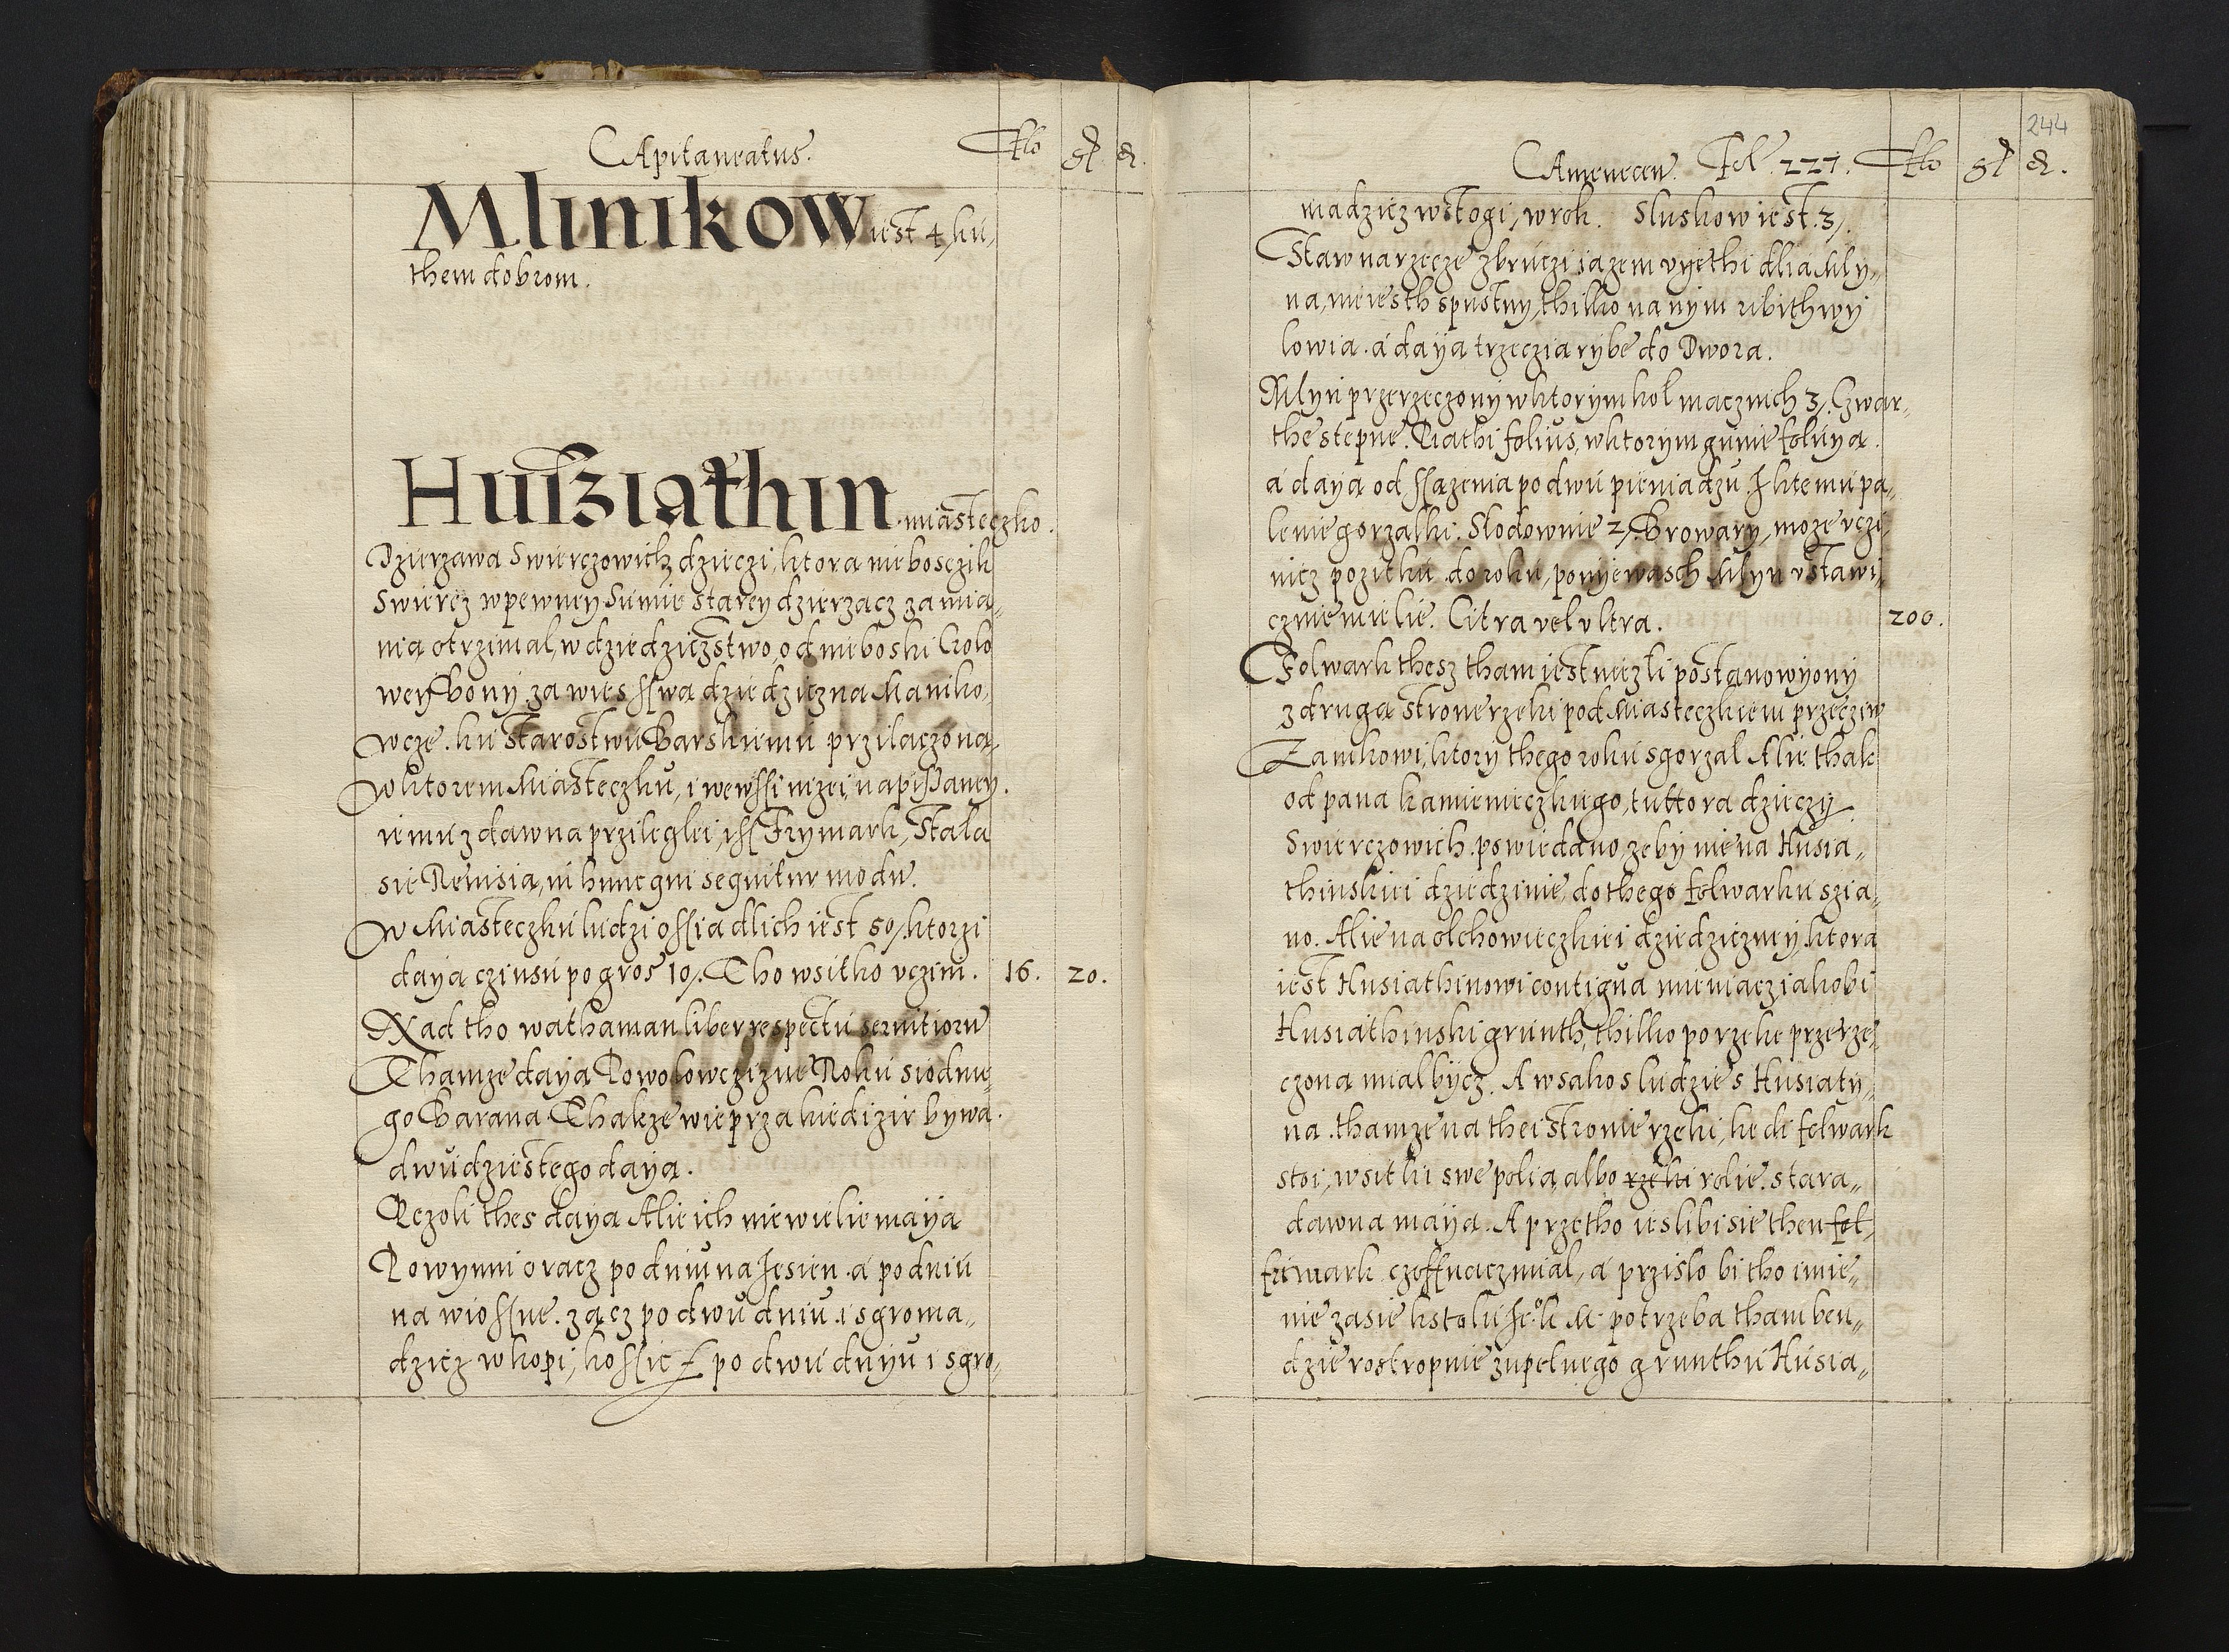 Capitaneatus. flo gl d.
Mlinikow iest 4, ku
them dobrom.
Husziathin miasteczko.
Dzierzawa Swierczowich dzieczi, ktora nieboszczik
Swiercz w pewney Sumie starey dzierzacz zamia„
nią otrzimal, w dziedzicztwo od nieboski Crolo
wey Bony za wies sswa dziedziczna Maniko„
wcze. ku Starostwu Barskiemu przilaczona.
W ktorem Miasteczku, i we wssi nizei napissaney.
iemu z dawna przileglei, iss Frymark, Stała
sie Revisia, in hunc qui sequitur modu.
W Miasteczku ludzi ossiadlich iest 50, ktorzi
daya czinsu po gros 10. Tho wsitko uczini. 16. 20.
Nad tho wathaman liber respectu servitioru
Thamze daya Powolowczizne Roku siodme„
go Barana Thakze wieprza kiedi zir bywa.
dwudziestego daya.
Pczoli thes daya Alie ich niewielie maya
Powynni oracz po dniu na Jesien. a po dniu
na wiossne. zącz po dwu dniu. i sgroma„
dzicz w kopi, kossic po dwu dnyu i sgro„
Camenecen. Fol. 227. flo gl d. 244
madzicz w stogi, w rok. Sluskow iest. 3,.
Staw na rzecze Zbruczi iazem uyethi dlia Mly„
na, nie iesth spustny, thilko na nym ribithwy
lowia. a daya trzeczia rybe do Dwora.
Mlyn przerzeczony w ktorym kol macznich 3,. Czwar„
the stepne. Piathi folius, w ktorym gunie foluya.
a daya od ssazenia po dwu pieniadzu. I k temu pa„
lenie gorzalki. Slodownie 2, Browary, moze uczi„
nicz pozitku do roku, ponyewasch Mlyn ustawi„
cznie mielie. Citra vel ultra. 200.
Folwark thesz tham iest niezli postanowyony
z druga strone rzeki pod Miasteczkiem przecziw
Zamkowi, ktory thego roku sgorzal Alie thak
od pana kamienieczkiego, tuttora dzieczy
Swierczowich. powiedano, ze by nie na Husia„
thinskiei dziedzinie, do thego folwarku szia„
no. Alie na olchowieczkiei dziedziczney, ktora
iest Husiathinowi contigua mieniacz iakobi
Husiathinski grunth, thilko po rzeke przerze„
czona mial bycz. A wsakos ludzie s Husiaty„
na. thamze na thei stronie rzeki, kedi folwark
stoi, wsitki swe polia, albo rzeki rolie. stara„
dawna maya. A przetho ieslibi sie then fol„
frimark czoffnacz mial, a przislo bi tho imie„
nie zasie k stolu Je. K. M. potrzeba tham ben„
dzie rostropnie zupelnego grunthu Husia„